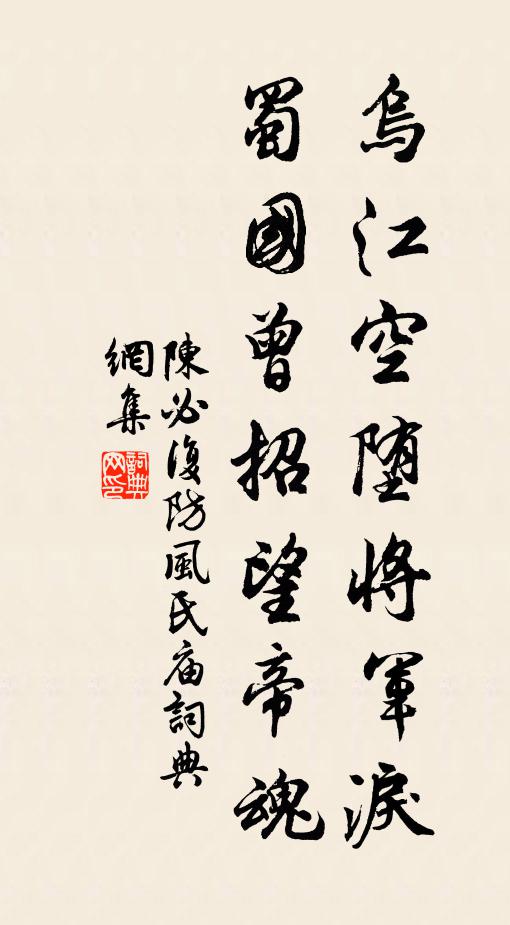 烏江空堕將軍淚
蜀國曾招望帝魂
陳必復防風氏庙詞典
網集
詞典網印